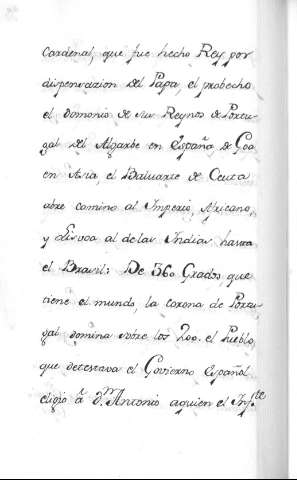 Cardenal, que fue hecho Rey por
dispensazion del Papa, el probecho
el domonio de sus Reynos de Portu,
gal del Algarbe en España de Goa
en Asia el Baluarte de Ceuta
abre camino al Imperio, Africano,
y Lisvoa al delas Indias hasta
el Brasil: De 360 Grados, que
tiene el mundo, la corona de Portu,
gal domina sobre los 200. el Pueblo,
que detestava el Govierno Español
eligió â Dn. Antonio aquien el Infte